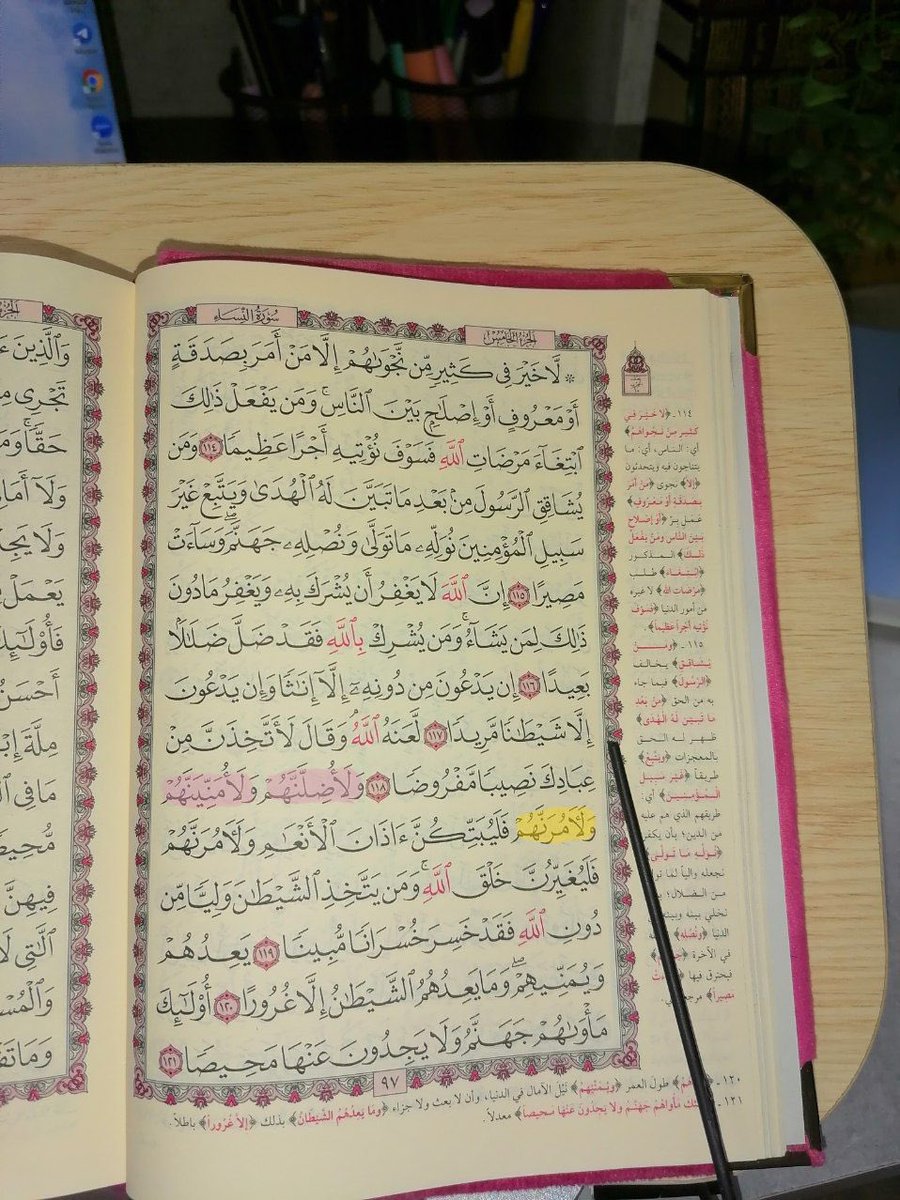 سُورَةُ النِّسَاءِ
الجُزْءُ الخَامِسُ
* لَّا خَيْرَ فِى كَثِيرٍ مِّن نَّجْوَىٰهُمْ إِلَّا مَنْ أَمَرَ بِصَدَقَةٍ
أَوْ مَعْرُوفٍ أَوْ إِصْلَٰحٍۭ بَيْنَ ٱلنَّاسِ ۚ وَمَن يَفْعَلْ ذَٰلِكَ
ٱبْتِغَآءَ مَرْضَاتِ ٱللَّهِ فَسَوْفَ نُؤْتِيهِ أَجْرًا عَظِيمًا ١١٤ وَمَن
يُشَاقِقِ ٱلرَّسُولَ مِنۢ بَعْدِ مَا تَبَيَّنَ لَهُ ٱلْهُدَىٰ وَيَتَّبِعْ غَيْرَ
سَبِيلِ ٱلْمُؤْمِنِينَ نُوَلِّهِۦ مَا تَوَلَّىٰ وَنُصْلِهِۦ جَهَنَّمَ ۖ وَسَآءَتْ
مَصِيرًا ١١٥ إِنَّ ٱللَّهَ لَا يَغْفِرُ أَن يُشْرَكَ بِهِۦ وَيَغْفِرُ مَا دُونَ
ذَٰلِكَ لِمَن يَشَآءُ ۚ وَمَن يُشْرِكْ بِٱللَّهِ فَقَدْ ضَلَّ ضَلَٰلًۢا
بَعِيدًا ١١٦ إِن يَدْعُونَ مِن دُونِهِۦٓ إِلَّآ إِنَٰثًا وَإِن يَدْعُونَ
إِلَّا شَيْطَٰنًا مَّرِيدًا ١١٧ لَّعَنَهُ ٱللَّهُ ۘ وَقَالَ لَأَتَّخِذَنَّ مِنْ
عِبَادِكَ نَصِيبًا مَّفْرُوضًا ١١٨ وَلَأُضِلَّنَّهُمْ وَلَأُمَنِّيَنَّهُمْ
وَلَءَامُرَنَّهُمْ فَلَيُبَتِّكُنَّ ءَاذَانَ ٱلْأَنْعَٰمِ وَلَءَامُرَنَّهُمْ
فَلَيُغَيِّرُنَّ خَلْقَ ٱللَّهِ ۚ وَمَن يَتَّخِذِ ٱلشَّيْطَٰنَ وَلِيًّا مِّن
دُونِ ٱللَّهِ فَقَدْ خَسِرَ خُسْرَانًا مُّبِينًا ١١٩ يَعِدُهُمْ
وَيُمَنِّيهِمْ ۖ وَمَا يَعِدُهُمُ ٱلشَّيْطَٰنُ إِلَّا غُرُورًا ١٢٠ أُو۟لَٰٓئِكَ
مَأْوَىٰهُمْ جَهَنَّمُ وَلَا يَجِدُونَ عَنْهَا مَحِيصًا ١٢١
٩٧
١١٤ـ ﴿لا خير في
كثير من نجواهم﴾
أي: الناس، أي: ما
يتناجون فيه ويتحدثون
﴿إلا﴾ نجوى ﴿من أمر
بصدقة أو معروف﴾
عمل بر ﴿أو إصلاح
بين الناس ومن يفعل
ذلك﴾ المذكور
﴿ابتغاء﴾ طلب
﴿مرضات الله﴾ لا غيره
من أمور الدنيا ﴿فسوف
نؤتيه أجراً عظيماً﴾.
١١٥ـ ﴿ومن
يشاقق﴾ يخالف
﴿الرسول﴾ فيما جاء
به من الحق ﴿من بعد
ما تبين له الهدى﴾
ظهر له الحق
بالمعجزات ﴿ويتبع﴾
طريقاً ﴿غير سبيل
المؤمنين﴾ أي
طريقهم الذي هم عليه
من الدين؛ بأن يكفر
﴿نوله ما تولى﴾
نجعله والياً لما تو
من الضلال؛ ب
نخلي بينه وبين
الدنيا ﴿ونصله﴾
في الآخرة
فيحترق فيها
مصيراً﴾ مرجع
١٢٠ـ طول العمر ﴿ويمنيهم﴾ نيل الآمال في الدنيا، وأن لا بعث ولا جزاء ﴿وما يعدهم الشيطان﴾ بذلك ﴿إلا غروراً﴾ باطلاً.
١٢١ـ مأواهم جهنم ولا يجدون عنها محيصاً﴾ معدلاً.
وَٱلَّذِينَ ءَ
تَجْرِى مِ
حَقًّا ۚ وَمَ